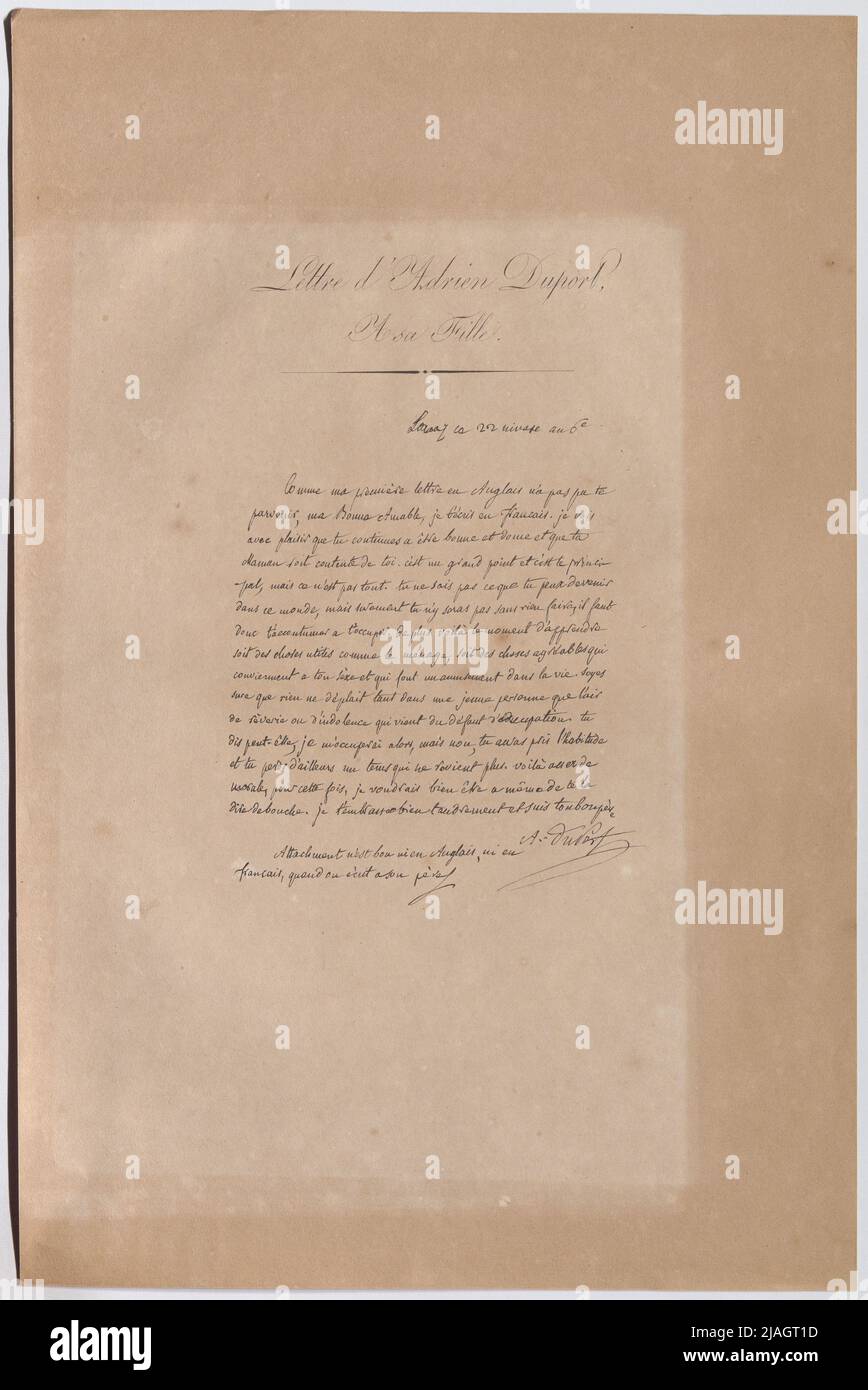 Lettre d'Adrien Duport,
A sa Fille.
ce 22 nivose an 6e
Comme ma première lettre en Anglais n'a pas pu te
parvenir, ma Bonne Amable, je t'écris en français. je vois
avec plaisir que tu continues a être bonne et douce et que ta
Maman soit contente de toi. c'est un grand point et c'est le princi-
-pal, mais ce n'est pas tout. tu ne sais pas ce que tu peux devenir
dans ce monde, mais surement tu n'y seras pas sans rien faire, il faut
donc t'accoutumer a t'occuper. de plus voilà le moment d'apprendre
soit des choses utiles comme le ménage, soit des choses agréables qui
conviennent a ton sexe et qui font un amusement dans la vie. soyes
sure que rien ne déplait tant dans une jeune personne que l'air
de rêverie ou d'indolence qui vient du défaut d'occupation. tu
dis peut-être, je m'occuperai alors, mais non, tu auras pris l'habitude
et tu perds d'ailleurs un tems qui ne revient plus. voilà assez de
morale, pour cette fois, je voudrais bien être a même de te la
dire de bouche. je t'embrasse bien tendrement et suis ton bon père
A. DuPort
Attachment n'est bon ni en Anglais, ni en
français, quand on écrit a son père
alamy
Image ID: 2JAGT1D
www.alamy.com